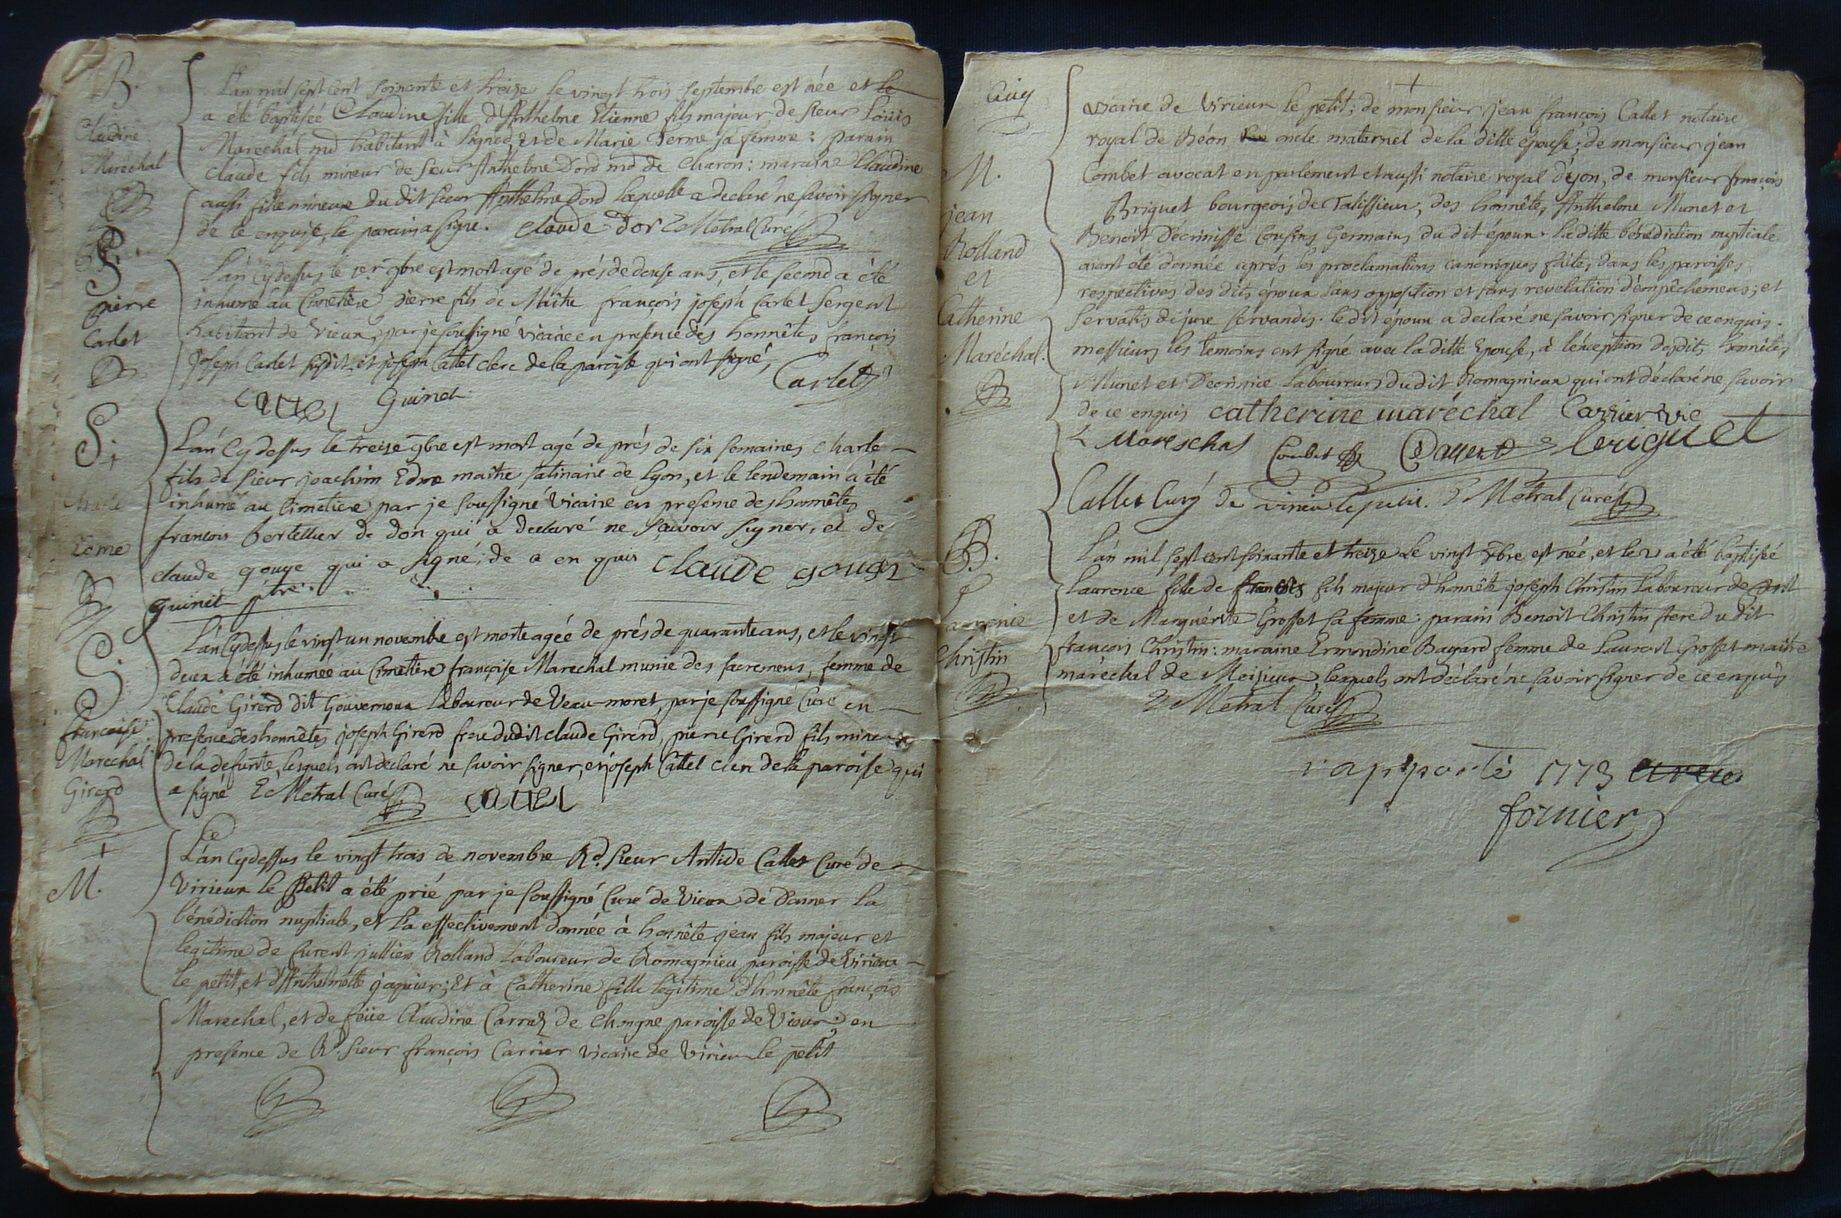 B.
Claudine
Marechal
L'an mil sept cent soixante et treize le vingt trois septembre est née et le
a été baptisée Claudine fille d'Anthelme Etienne fils majeur de sieur Louis
Marechal md habitant à Lignod, et de Marie Derme sa femme : parain
Claude fils mineur de sieur Anthelme Dord md de Charon : maraine Claudine
aussi fille mineure du dit sieur Anthelme Dord laquelle a declaré ne savoir signer
de ce enquise, le parain a signé. Claude Dor E Metral Curé
S.
pierre
Carlet
L'an cydessus le 9bre est mort agé de prés de deuse ans, et le second a été
inhumé au Cimetiere pierre fils de Maitre françois joseph Carlet Sergent
habitant de Vieux, par je soussigné vicaire en presence des honnêtes françois
joseph Carlet susdit et joseph Cattel clerc de la paroisse qui ont signé,
Carlet
Cattel Guinet
S.
Charle
Edme
L'an cydessus le treize 9bre est mort agé de prés de six semaines Charle
fils de sieur joachim Edme maitre satinaire de Lyon, et le lendemain a été
inhumé au Cimetiere par je soussigné Vicaire en presence des honnêtes
francois bertellier de don qui a declaré ne sçavoir signer, et de
claude gouge qui a signé, de a en quis claude gouge
guinet ptre
S.
françoise
Marechal
Girerd
L'an cydessus le vingt un novembre est morte agée de prés de quarante ans, et le vingt
deux a été inhumée au Cimetiere françoise Marechal munie des sacremens, femme de
Claude Girerd dit Gouverneur Laboureur de Veau-moret, par je soussigné Curé en
presence des honnêtes joseph Girerd frere du dit claude Girerd, pierre Girerd fils mineur
de la defunte, lesquels ont declaré ne savoir signer, et joseph Cattel clerc de la paroisse qui
a signé E Metral Curé Cattel
M.
L'an cydessus le vingt trois de novembre Rd. sieur Antide Callet Curé de
Virieux le petit a été prié par je soussigné Curé de Vieux de donner la
bénédiction nuptiale, et l'a effectivement donnée à honnête jean fils majeur et
legitime de Laurent jullien Rolland Laboureur de Romagnieu paroisse de Virieux
le petit, et d'Anthelmette jaquier; Et à Catherine fille legitime d'honnête françois
Marechal, et de feüe Claudine Carraz de Chongne paroisse de Vieux; en
presence de Rd. sieur françois Carrier vicaire de Virieu le petit
M.
jean
Rolland
et
Catherine
Maréchal.
vicaire de Virieux le petit; de monsieur jean françois Callet notaire
royal de Béon oncle maternel de la ditte épouse; de monsieur jean
Combet avocat en parlement et aussi notaire royal d'yon, de monsieur françois
Briguet bourgeois de Talissieux, des honnêtes, Anthelme Munet et
Benoit Décrinisse Cousins Germains du dit epoux. la ditte bénédiction nuptiale
aiant été donnée aprés les proclamations canoniques faites dans les paroisses
respectives des dits époux sans opposition et sans revelation d'empêchemens; et
servatis de jure servandis. le dit époux a declaré ne savoir signer de ce enquis.
messieurs les temoins ont signé avec la ditte Epouse, à l'exeption des dits honnêtes
Munet et Decrinice Laboureurs du dit Romagnieux qui ont déclaré ne savoir
de ce enquis catherine maréchal Carrier vic
Mareschal Combet Callet briguet
Callet Curé de virieu le petit. E Metral Curé
B.
Laurence
Christin
L'an mil, sept cent soixante et treize le vingt Xbre est née, et le v a été baptisée
Laurence fille de françois fils majeur d'honnête joseph Christin Laboureur de
et de Marguérite Grosset sa femme : parain Benoit Christin frere du dit
françois Christin : maraine Ermondine Bavard femme de Laurent Grosset maitre
maréchal de Meisieux lesquels ont déclaré ne savoir signer de ce enquis
E Metral Curé
rapporté 1773
fornier